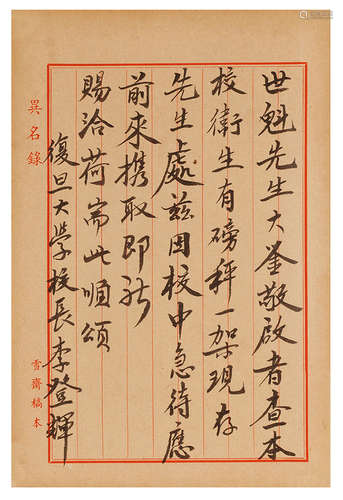 世魁先生大鉴敬啟者查本
校衛生有磅秤一架現存
先生處兹因校中急待應
前來携取即祈
賜洽荷耑此順頌
復旦大學校長李登輝
異名錄
雪齋稿本